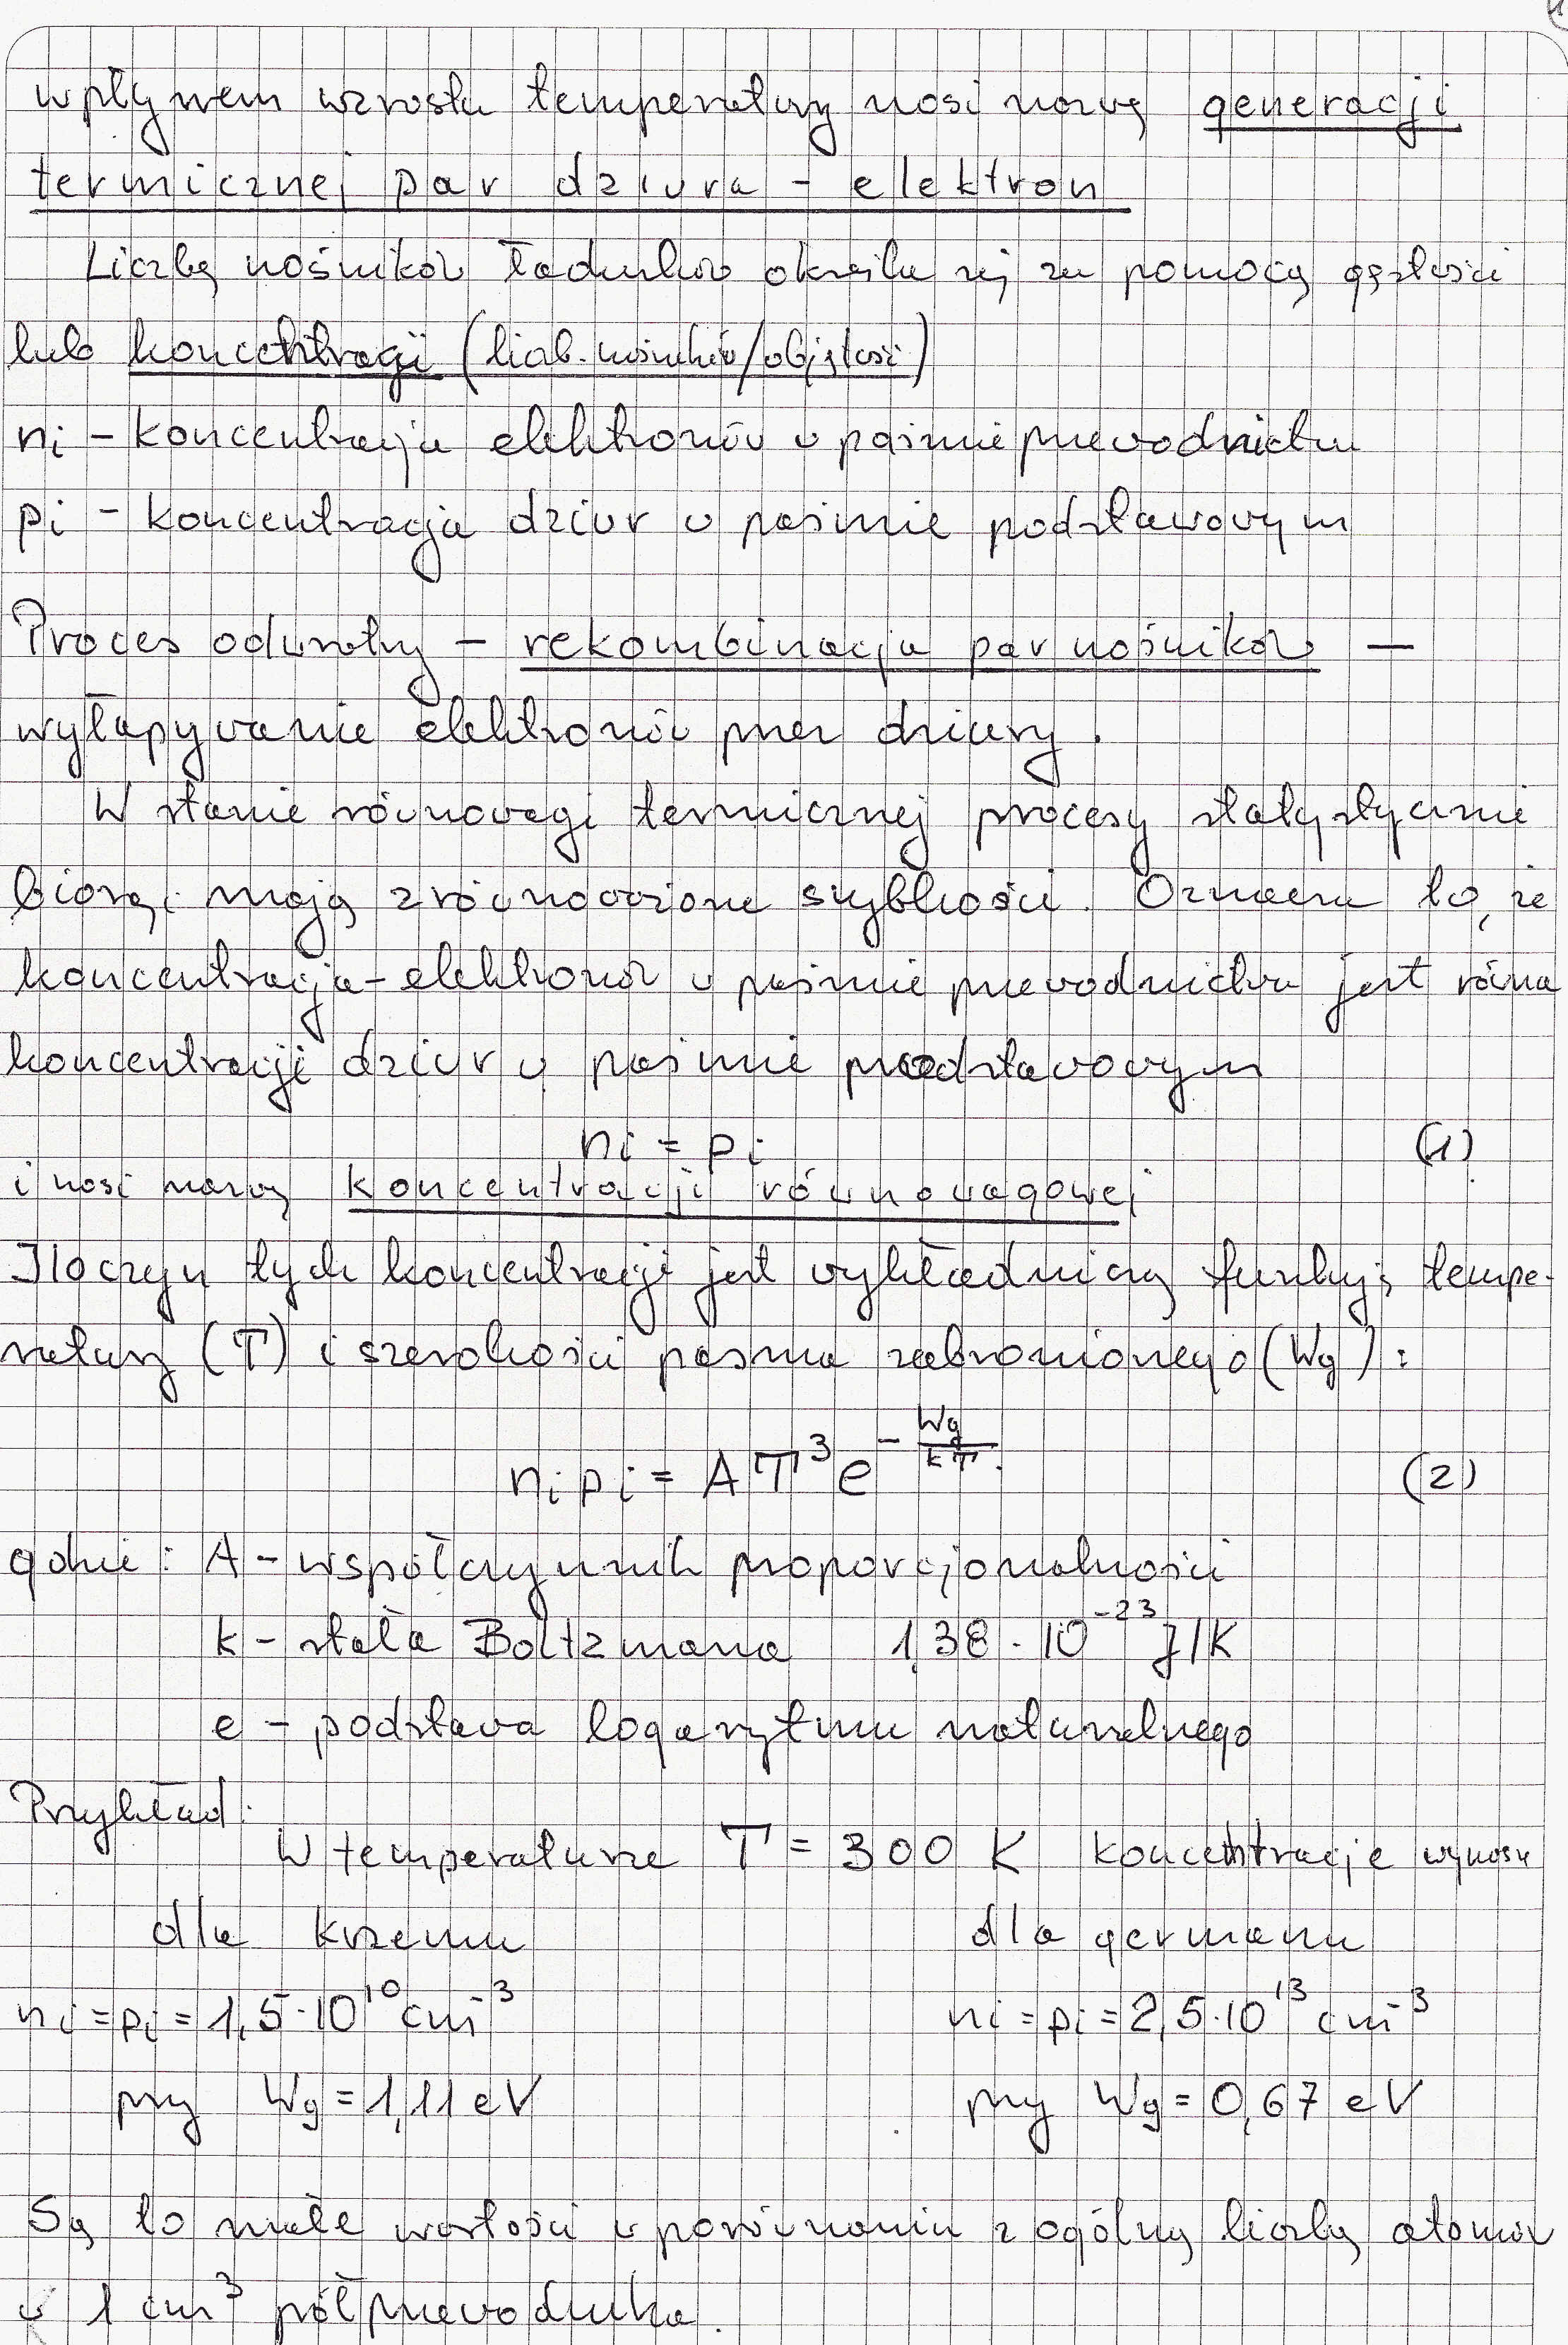 wpływem wzrostu temperatury nosi nazwę generacji
termicznej par dziura - elektron
Liczbę nośników ładunków określa się za pomocą gęstości
lub koncentracji (liczb. nośników/objętość)
ni - koncentracja elektronów w paśmie przewodnictwa
pi - koncentracja dziur w paśmie podstawowym
Proces odwrotny - rekombinacja par nośników -
wyłapywanie elektronów przez dziury.
W stanie równowagi termicznej procesy statystycznie
biorąc mają zrównoważone szybkości. Oznacza to, że
koncentracja elektronów w paśmie przewodnictwa jest równa
koncentracji dziur w paśmie podstawowym
ni = pi (1)
i nosi nazwę koncentracji równowagowej
Iloczyn tych koncentracji jest wykładniczą funkcją tempe-
ratury (T) i szerokości pasma zabronionego (Wg) :
ni pi = A T³ e^(-Wg/kT) (2)
gdzie : A - współczynnik proporcjonalności
k - stała Boltzmana 1,38 · 10⁻²³ J/K
e - podstawa logarytmu naturalnego
Przykład:
W temperaturze T = 300 K koncentracje wynoszą
dla krzemu dla germanu
ni = pi = 1,5 · 10¹⁰ cm⁻³ ni = pi = 2,5 · 10¹³ cm⁻³
przy Wg = 1,11 eV przy Wg = 0,67 eV
Są to małe wartości w porównaniu z ogólną liczbą atomów
w 1 cm³ półprzewodnika.